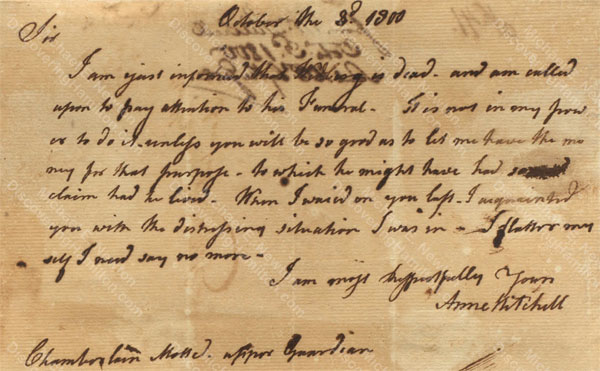 October the 3d 1800
Sir
I am just informed that is dead - and am called
upon to pay attention to his Funeral - It is not in my pow
er to do it unless you will be so good as to let me have the mo
ney for that purpose - to which he might have had
claim had he lived - When I waited on you last - I acquainted
you with the distressing situation I was in - I flatter my
self I need say no more -
I am most respectfully Your
Anne Mitchell
Chamberlain Guardian